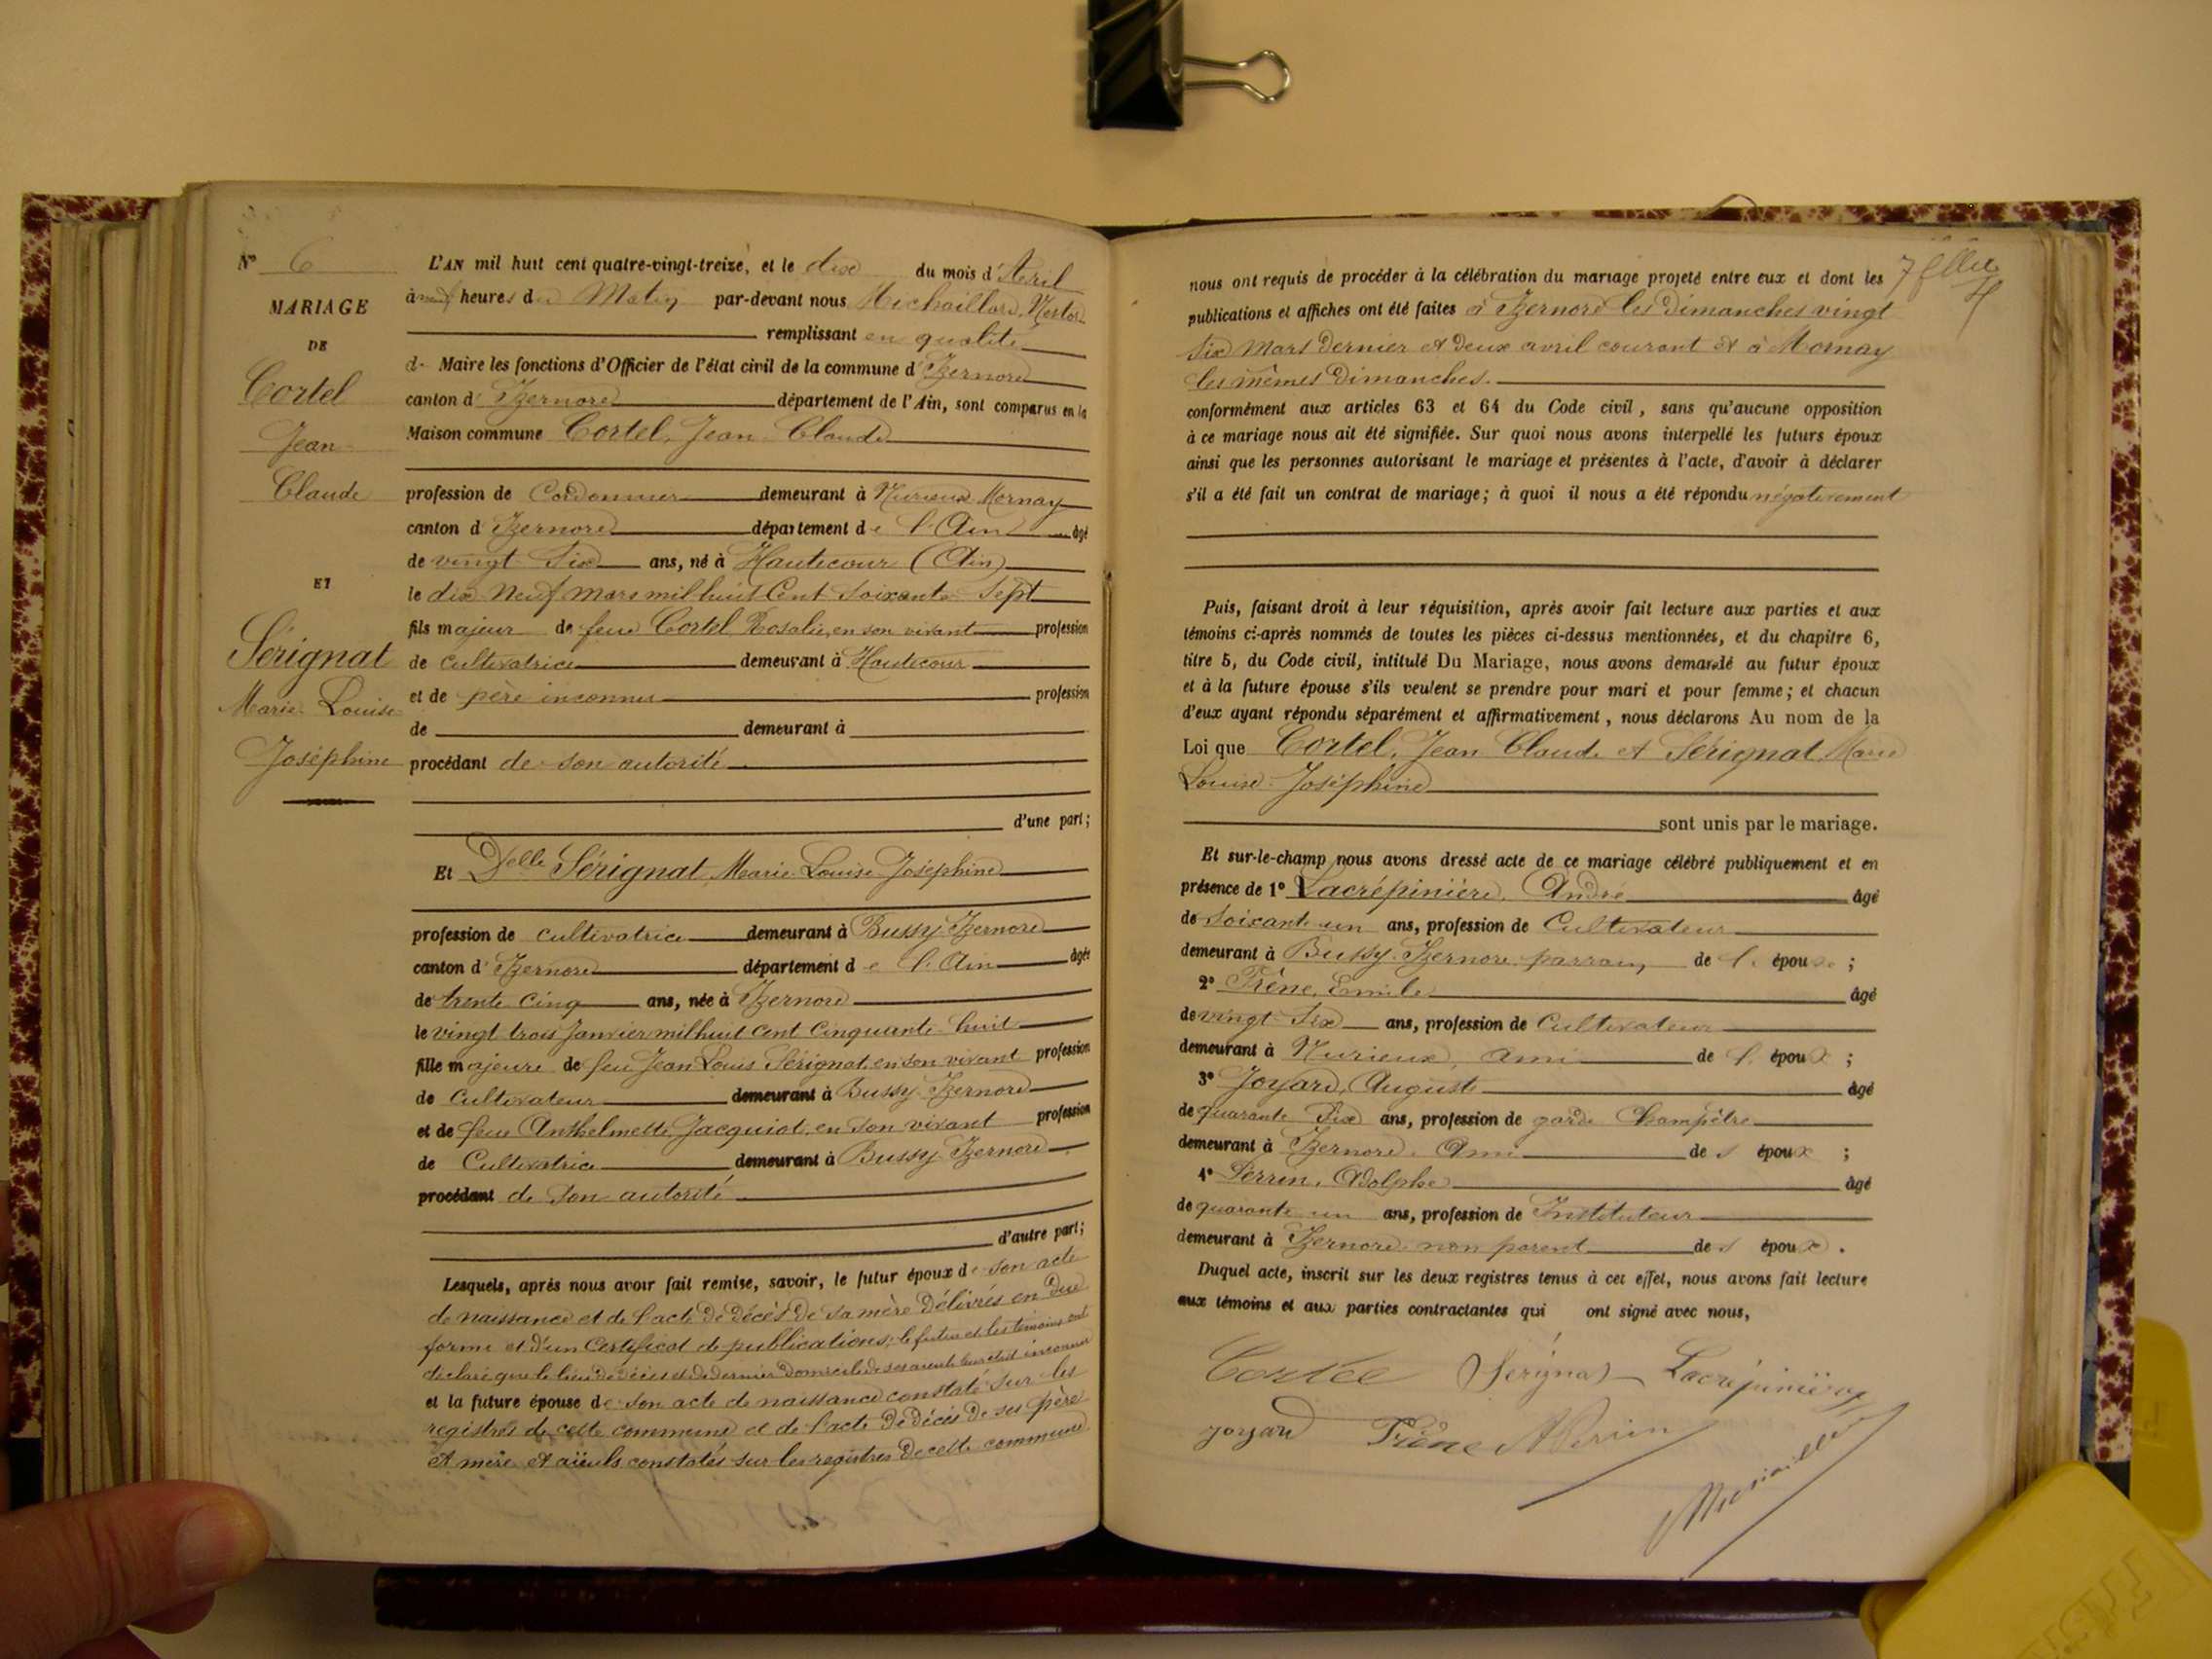 N° 6
MARIAGE
DE
Cortel
Jean
Claude
ET
Sérignat
Marie Louise
Joséphine
L'AN mil huit cent quatre-vingt-treize, et le dix du mois d'Avril
à neuf heures du Matin par-devant nous Michaillard, Nestor
remplissant en qualité
de Maire les fonctions d'Officier de l'état civil de la commune d'Izernore
canton d'Izernore département de l'Ain, sont comparus en la
Maison commune Cortel, Jean Claude
profession de Cordonnier demeurant à Nurieux Mornay
canton d'Izernore département de l'Ain âgé
de vingt Six ans, né à Hautecour (Ain)
le dix Neuf Mars mil huit Cent Soixante Sept
fils majeur de feue Cortel Rosalie, en son vivant profession
de cultivatrice demeurant à Hautecour
et de père inconnu profession
de demeurant à
procédant de son autorité
d'une part;
Et Delle Sérignat Marie Louise Joséphine
profession de cultivatrice demeurant à Bussy Izernore
canton d'Izernore département de l'Ain âgée
de trente Cinq ans, née à Izernore
le vingt trois Janvier mil huit cent Cinquante huit
fille majeure de feu Jean Louis Sérignat, en son vivant profession
de Cultivateur demeurant à Bussy Izernore
et de feue Anthelmette Jacquiot, en son vivant profession
de Cultivatrice demeurant à Bussy Izernore
procédant de son autorité
d'autre part;
Lesquels, après nous avoir fait remise, savoir, le futur époux de son acte
de naissance et de l'acte de décès de sa mère délivrés en due
forme et d'un Certificat de publications; le futur et les témoins ont
déclaré que le lieu de décès et de dernier domicile de ses aieuls leur était inconnu
et la future épouse de son acte de naissance constaté sur les
registres de cette commune et de l'acte de décès de ses père
et mère et aïeuls constatés sur les registres de cette commune
nous ont requis de procéder à la célébration du mariage projeté entre eux et dont les
publications et affiches ont été faites à Izernore les dimanches vingt
Six Mars dernier et deux avril courant et à Mornay
les mêmes dimanches.
conformément aux articles 63 et 64 du Code civil, sans qu'aucune opposition
à ce mariage nous ait été signifiée. Sur quoi nous avons interpellé les futurs époux
ainsi que les personnes autorisant le mariage et présentes à l'acte, d'avoir à déclarer
s'il a été fait un contrat de mariage; à quoi il nous a été répondu négativement
Puis, faisant droit à leur réquisition, après avoir fait lecture aux parties et aux
témoins ci-après nommés de toutes les pièces ci-dessus mentionnées, et du chapitre 6,
titre 5, du Code civil, intitulé Du Mariage, nous avons demandé au futur époux
et à la future épouse s'ils veulent se prendre pour mari et pour femme; et chacun
d'eux ayant répondu séparément et affirmativement, nous déclarons Au nom de la
Loi que Cortel, Jean Claude et Sérignat Marie
Louise Joséphine
sont unis par le mariage.
Et sur-le-champ nous avons dressé acte de ce mariage célébré publiquement et en
présence de 1° Lacrépinière, André âgé
de soixante un ans, profession de Cultivateur
demeurant à Bussy-Izernore parrain de l'épouse;
2° Frêne, Emile âgé
de vingt Six ans, profession de Cultivateur
demeurant à Nurieux, ami de l'époux;
3° Joyard, Auguste âgé
de quarante Six ans, profession de garde Champêtre
demeurant à Izernore, Ami des époux;
4° Perrin, Adolphe âgé
de quarante un ans, profession de Instituteur
demeurant à Izernore non parent des époux.
Duquel acte, inscrit sur les deux registres tenus à cet effet, nous avons fait lecture
aux témoins et aux parties contractantes qui ont signé avec nous,
Cortel Sérignat Lacrépinière
joyard Frêne A Perrin